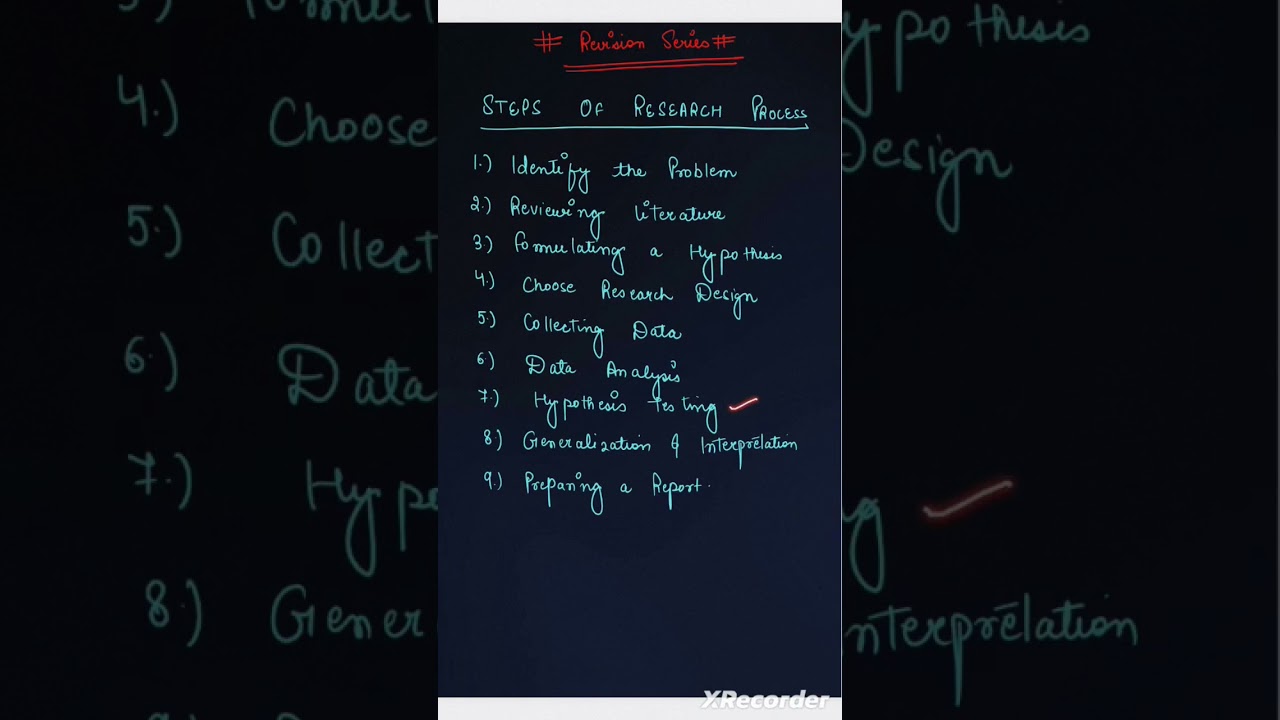 # Revision Series #
STEPS OF RESEARCH PROCESS
1.) Identify the Problem
2.) Reviewing Literature
3) Formulating a Hypothesis
4.) Choose Research Design
5.) Collecting Data
6.) Data Analysis
7.) Hypothesis Testing ✓
8) Generalization & Interpretation
9.) Preparing a Report.
XRecorder